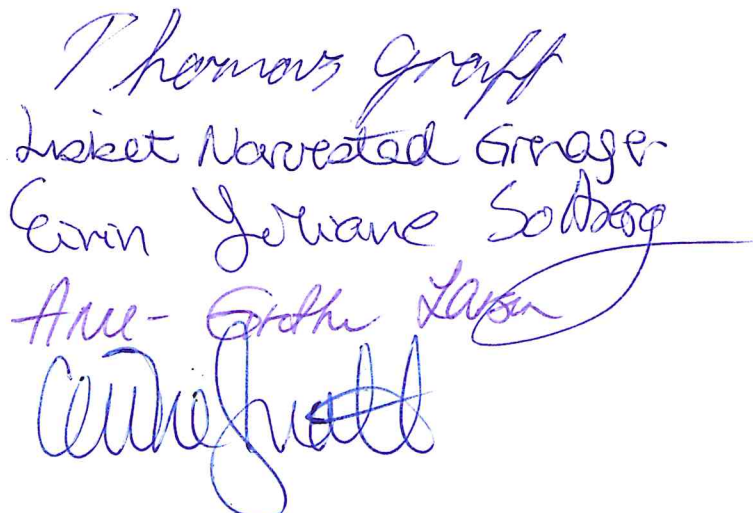 Thomas Graff
Lisbet Narvestad Grenager
Eirin Juliane Solberg
Ane-Grethe Larsen